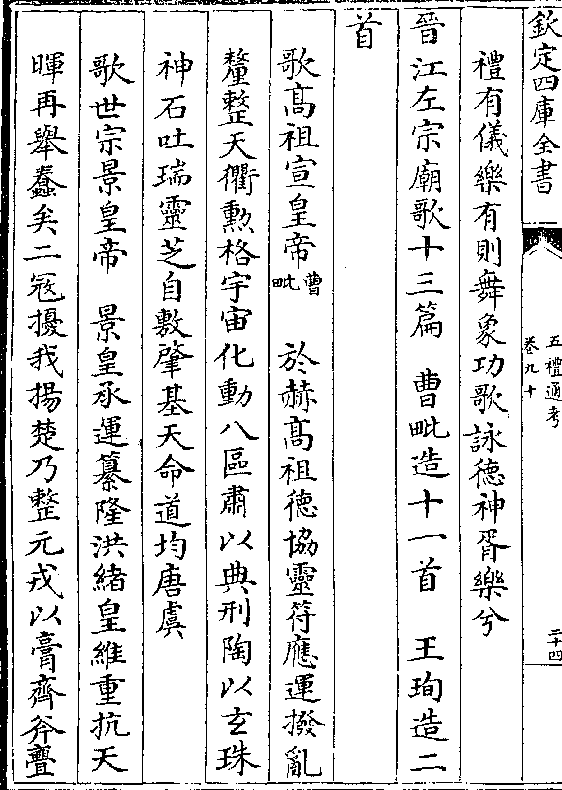 欽定四庫全書
五禮通考
卷九十
二十四
禮有儀樂有則舞象功歌詠德神胥樂兮
晉江左宗廟歌十三篇　曹毗造十一首　王珣造二
首
歌高祖宣皇帝曹毗　於赫高祖德協靈符應運撥亂
釐整天衢勲格宇宙化動八區肅以典刑陶以玄珠
神石吐瑞靈芝自敷肇基天命道均唐虞
歌世宗景皇帝　景皇承運纂隆洪緒皇維重抗天
暉再舉蠢矣二寇擾我揚楚乃整元戎以膏齊斧亹